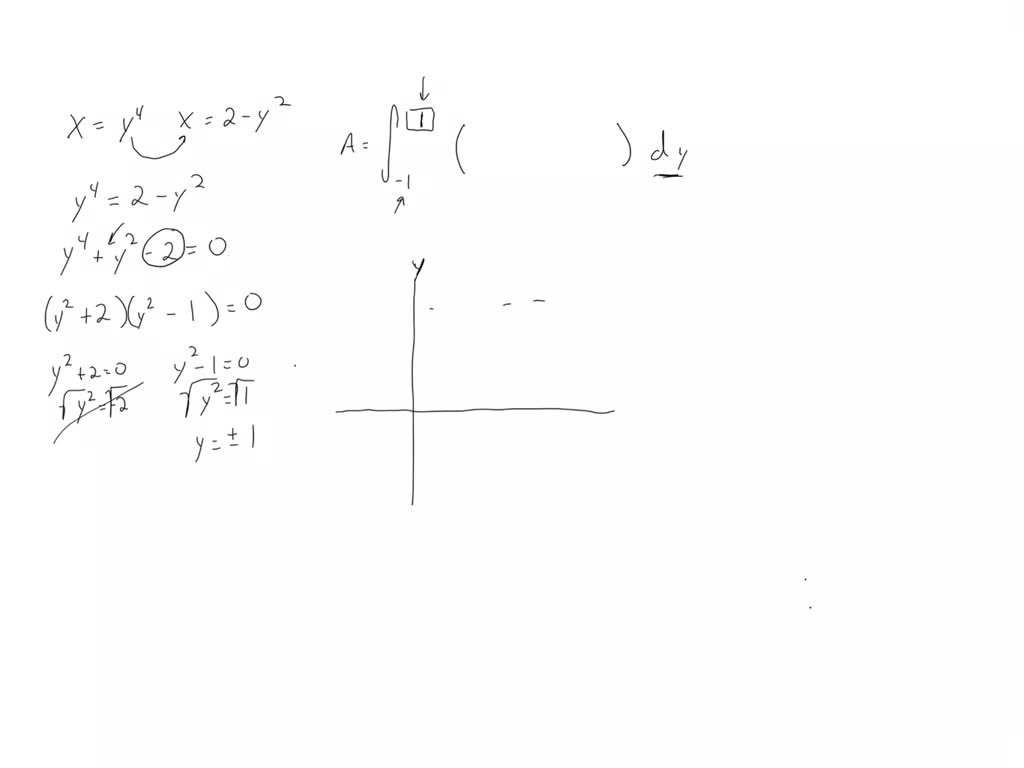 x = y⁴ x = 2 - y²
y⁴ = 2 - y²
y⁴ + y² - 2 = 0
(y² + 2)(y² - 1) = 0
y² + 2 = 0 y² - 1 = 0
√y² = √-2 √y² = √1
y = ± 1
A = ∫₋₁¹ ( ) dy
y